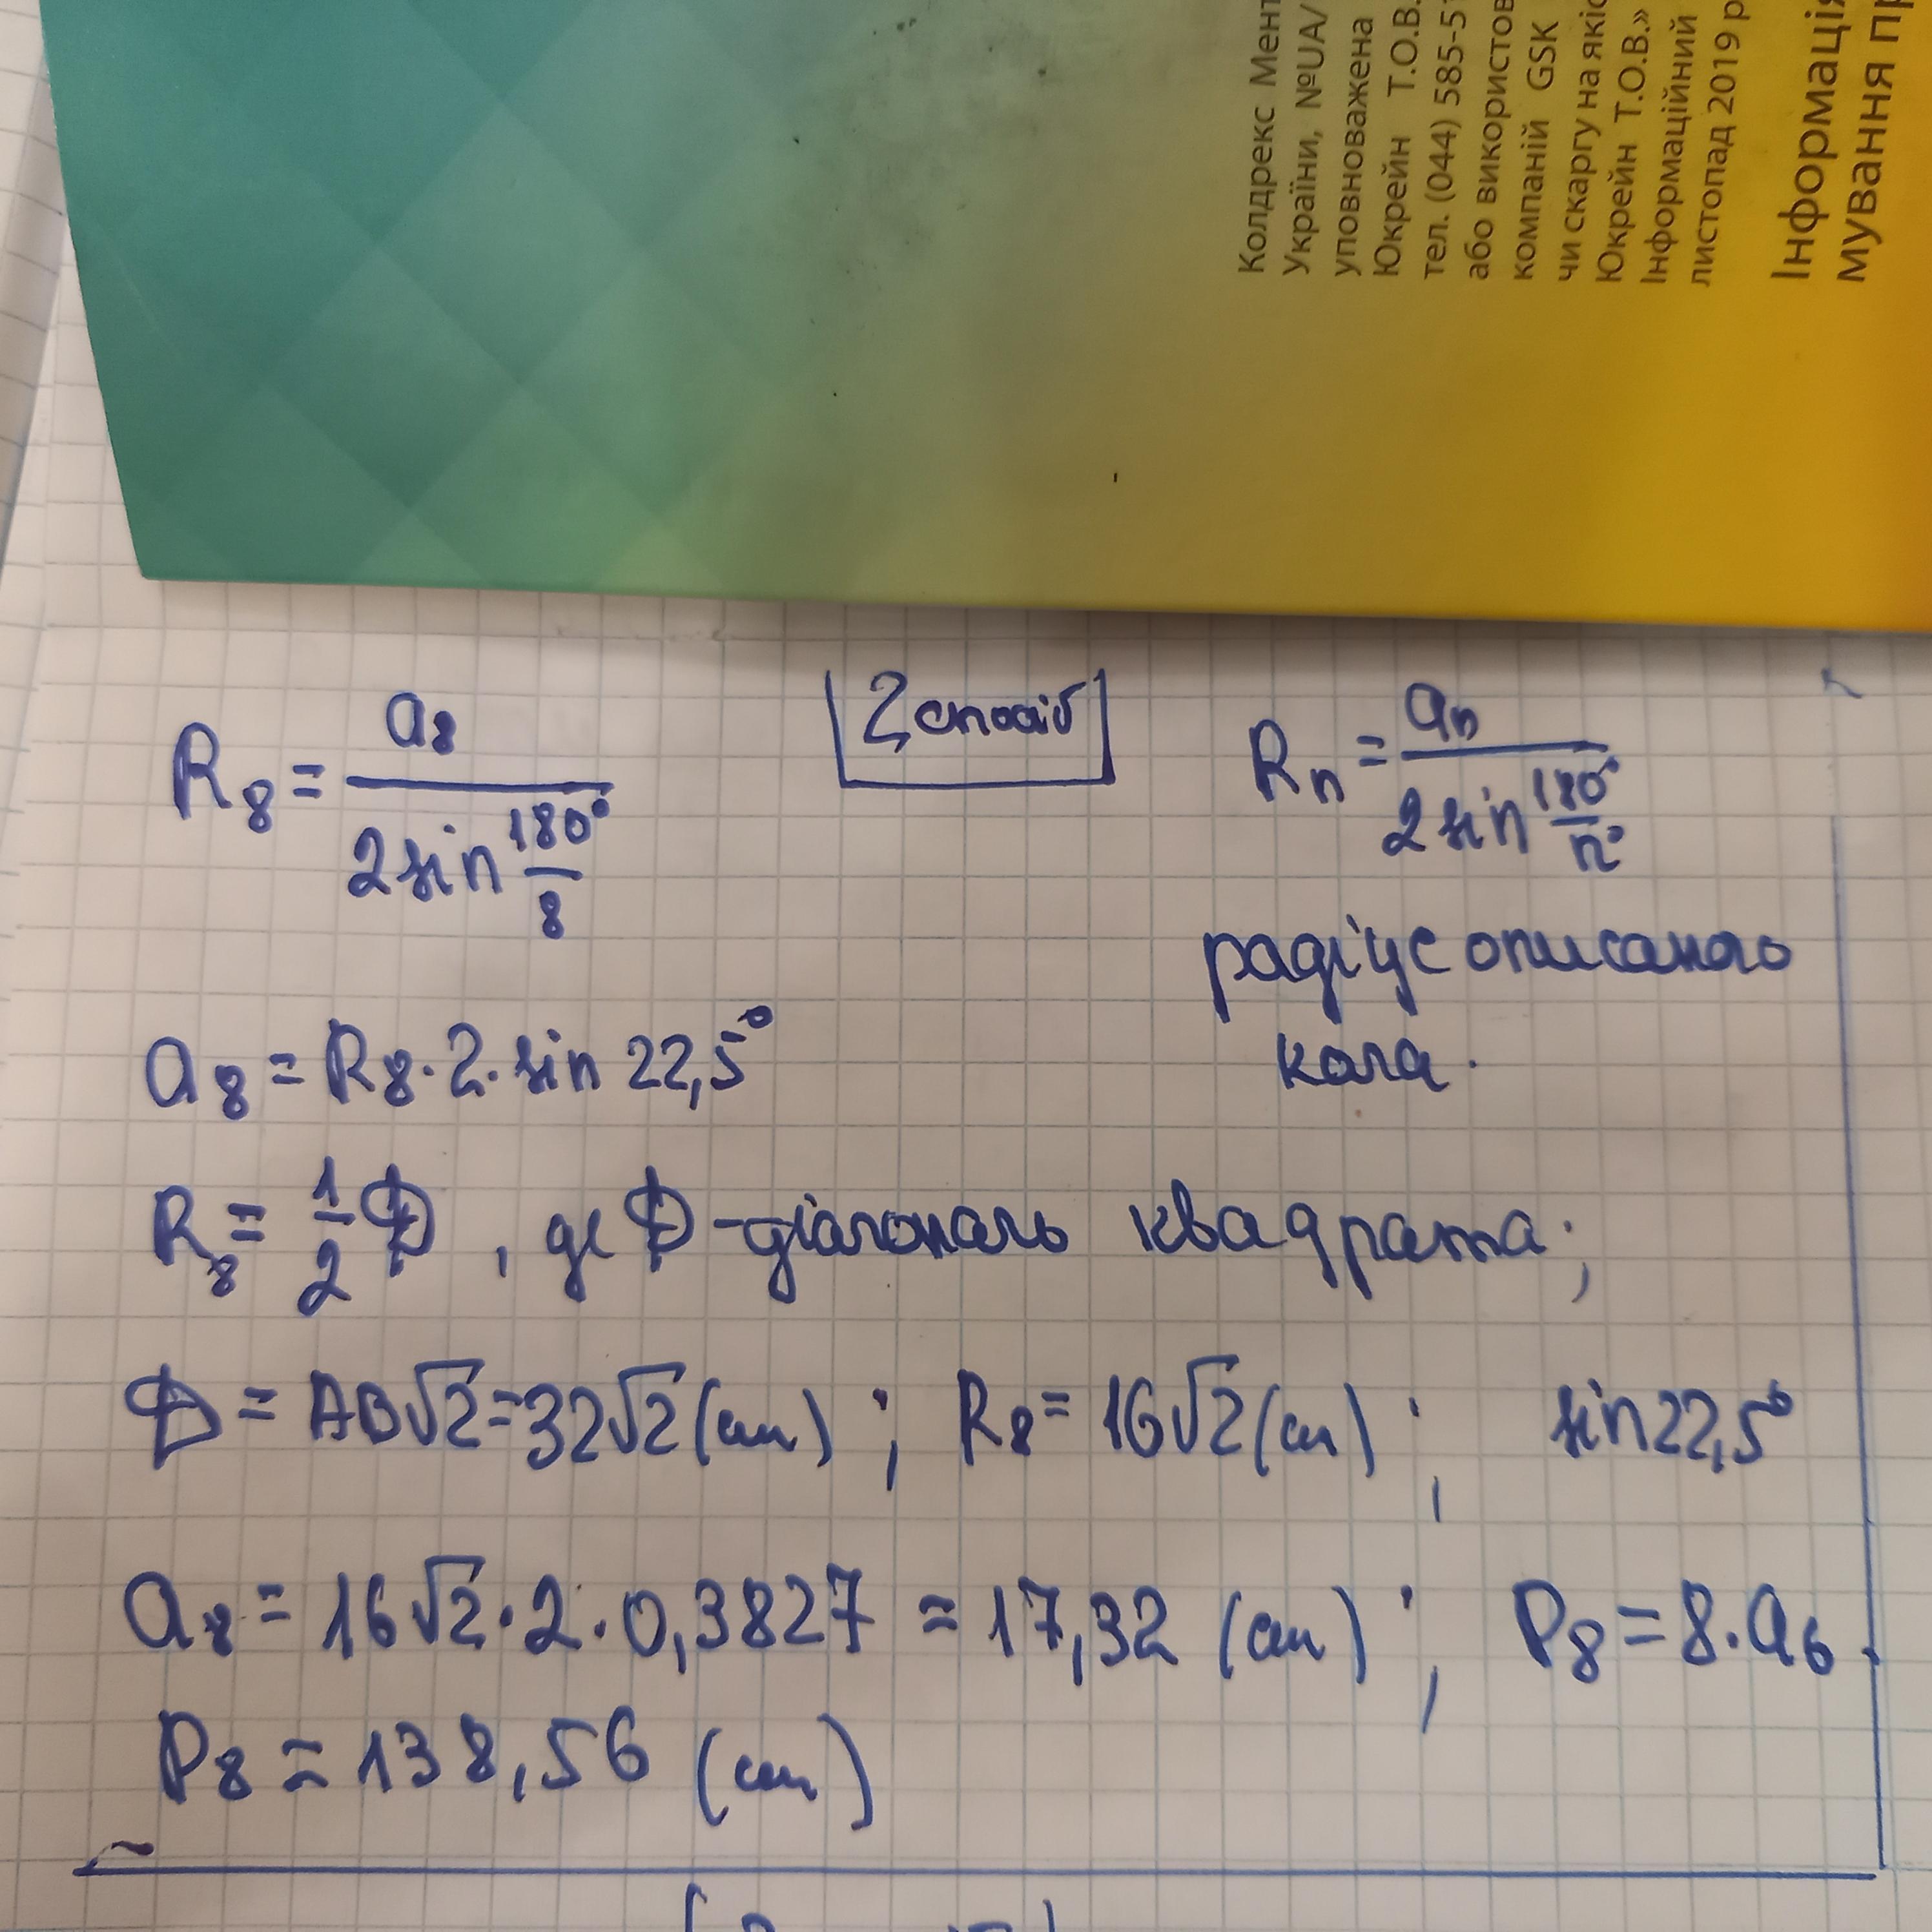 Колдрекс Мент
України, №UA/
уповноважена
Юкрейн Т.О.В.
тел. (044) 585-51
або використов
компаній GSK
чи скаргу на якіс
Юкрейн Т.О.В.»
Інформаційний
листопад 2019 р
Інформація
мування пр
2 спосіб
R₈ = a₈ / (2 sin 180°/8)
Rₙ = aₙ / (2 sin 180°/n°)
радіус описаного
кола.
a₈ = R₈ · 2 · sin 22,5°
R₈ = 1/2 D, де D - діагональ квадрата;
D = AB√2 = 32√2 (см); R₈ = 16√2 (см); sin 22,5°
a₈ = 16√2 · 2 · 0,3827 = 17,32 (см); P₈ = 8 · a₆
P₈ = 138,56 (см)